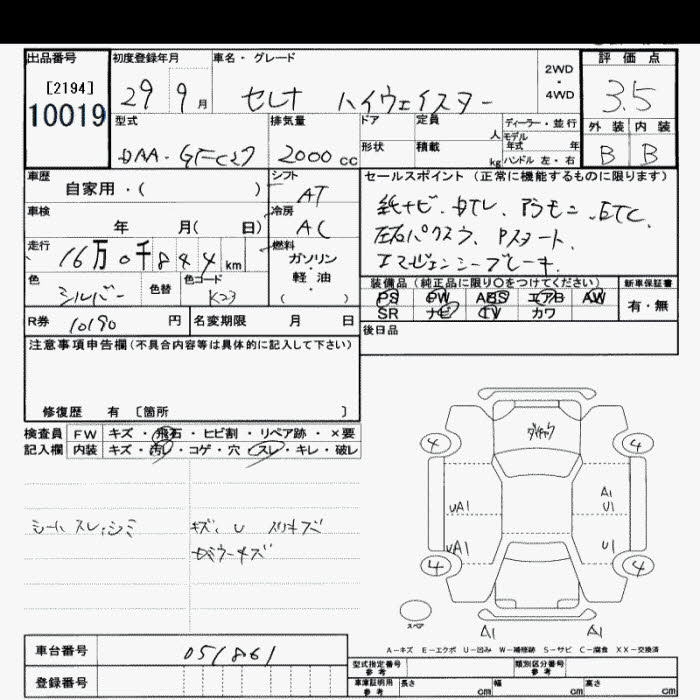 出品番号 初度登録年月 車名・グレード 評価点
[2194] 10019 29 9月 セレナ ハイウェイスター 2WD・4WD 3.5
型式 排気量 ドア 定員 人 ディーラー・並行 外装 内装
モデル年式 年
DAA-GFC27 2000cc 形状 積載 kg ハンドル 左・右 B B
車歴 自家用・( ) シフト AT セールスポイント(正常に機能するものに限ります)
車検 年 月( 日) 冷房 AC 紙ナビ、地TV、アラモニ、ETC、
走行 16万0千844km 燃料 ガソリン・軽油・( ) 左右パワスラ、Pスタート、
エマージェンシーブレーキ
色 シルバー 色替 色コード K23 装備品(純正品に限り○をつけてください) 新車保証書
PS PW ABS エアB AW 有・無
SR ナビ TV カワ
R券 10190円 名変期限 月 日 後日品
注意事項申告欄(不具合内容等は具体的に記入して下さい)
修復歴 有 〔箇所 〕
検査員 FW キズ・飛石・ヒビ割・リペア跡・×要
記入欄 内装 キズ・汚レ・コゲ・穴・スレ・キレ・破レ
シートスレ、シミ キズ、U スリキズ
4 4
UA1 A1
U1
UA1 U1
4 4
スペア A1 A1
A-キズ E-エクボ U-凹み W-補修跡 S-サビ C-腐食 XX-交換済
車台番号 051861
型式指定番号 参考 類別区分番号 参考
登録番号 車庫証明用 参考 長さ cm 幅 cm 高さ cm